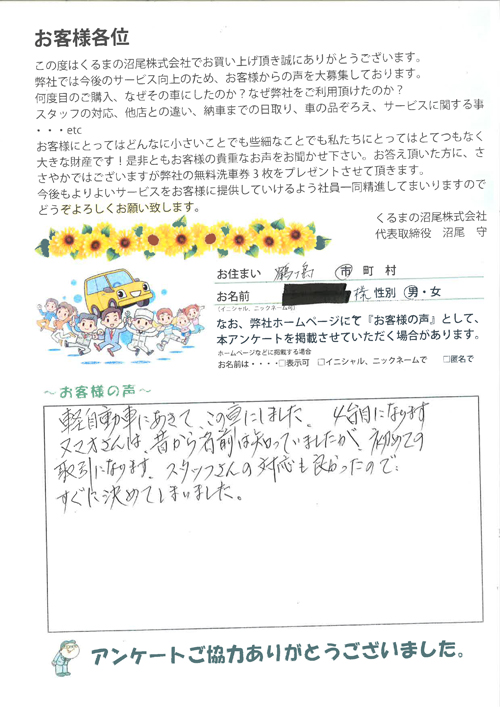 お客様各位
この度はくるまの沼尾株式会社でお買い上げ頂き誠にありがとうございます。
弊社では今後のサービス向上のため、お客様からの声を大募集しております。
何度目のご購入、なぜその車にしたのか？なぜ弊社をご利用頂けたのか？
スタッフの対応、他店との違い、納車までの日取り、車の品ぞろえ、サービスに関する事
・・・etc
お客様にとってはどんなに小さいことでも些細なことでも私たちにとってはとてつもなく
大きな財産です！是非ともお客様の貴重なお声をお聞かせ下さい。お答え頂いた方に、さ
さやかではございますが弊社の無料洗車券３枚をプレゼントさせて頂きます。
今後もよりよいサービスをお客様に提供していけるよう社員一同精進してまいりますので
どうぞよろしくお願い致します。
くるまの沼尾株式会社
代表取締役 沼尾 守
お住まい 鶴ヶ島 市 町 村
お名前 様 性別 男・女
(イニシャル、ニックネーム可)
なお、弊社ホームページにて『お客様の声』として、
本アンケートを掲載させていただく場合があります。
ホームページなどに掲載する場合
お名前は・・・・□表示可 □イニシャル、ニックネームで □匿名で
～お客様の声～
軽自動車にあきて、この車にしました。 4台目になります
ヌマオさんは、昔から名前は知っていましたが、初めての
取引になります。スタッフさんの対応も良かったので
すぐに決めてしまいました。
アンケートご協力ありがとうございました。